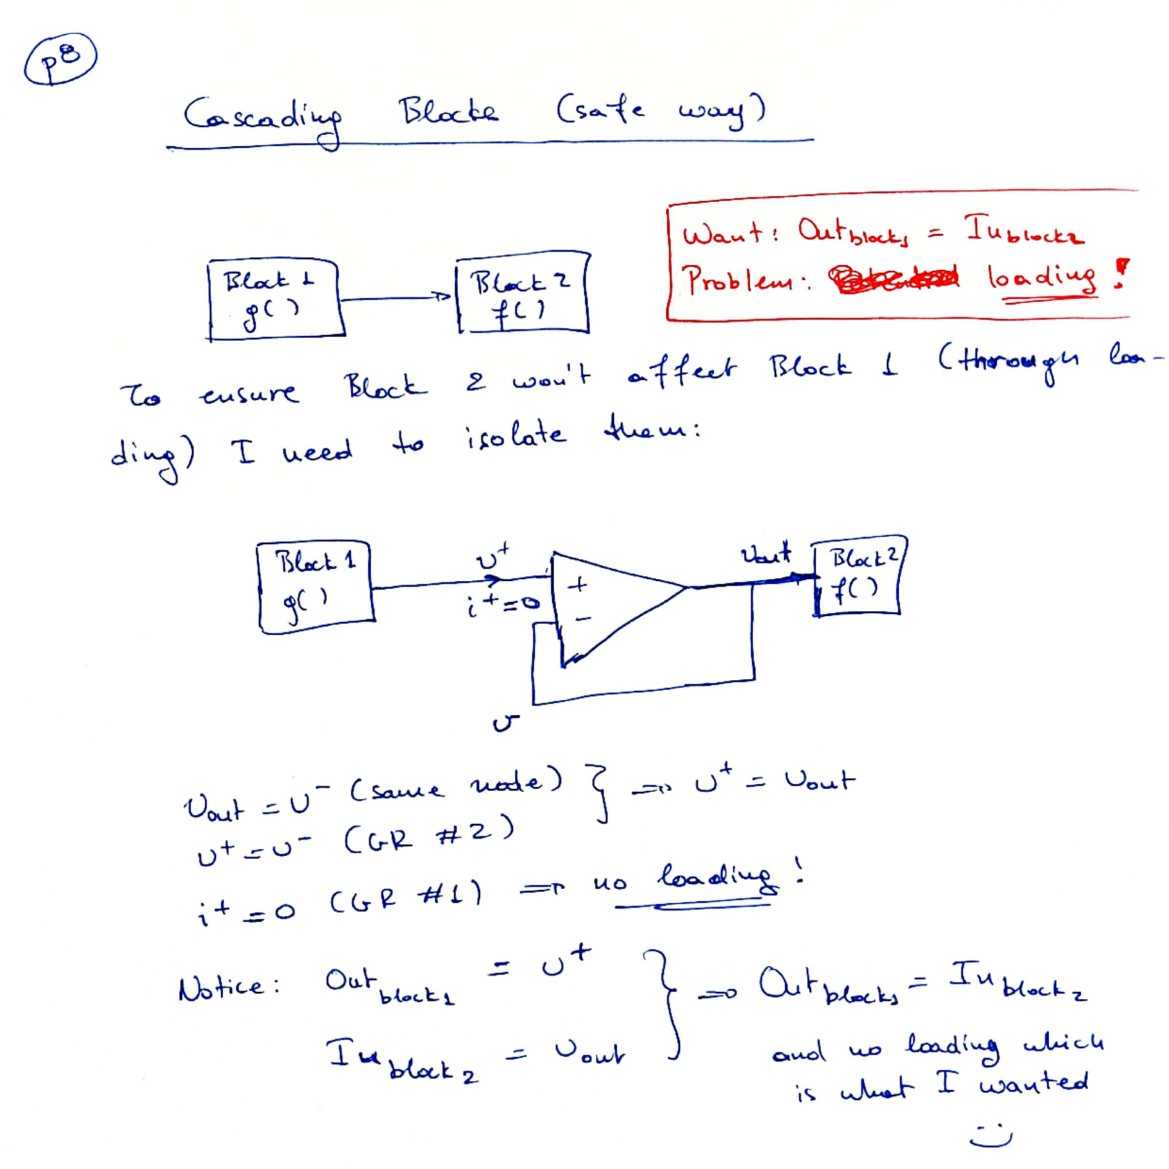 p8
Cascading Blocks (safe way)
Want: Out block1 = In block2
Problem: loading !
Block 1
g( )
Block 2
f( )
To ensure Block 2 won't affect Block 1 (through loa-
ding) I need to isolate them:
Block 1
g( )
υ+
i+=0
+
-
Vout
Block2
f( )
υ
Vout = υ- (same node) } => υ+ = Vout
υ+ = υ- (GR #2)
i+ = 0 (GR #1) => no loading !
Notice: Out block1 = υ+ } => Out block1 = In block2
In block2 = Vout
and no loading which
is what I wanted
:)